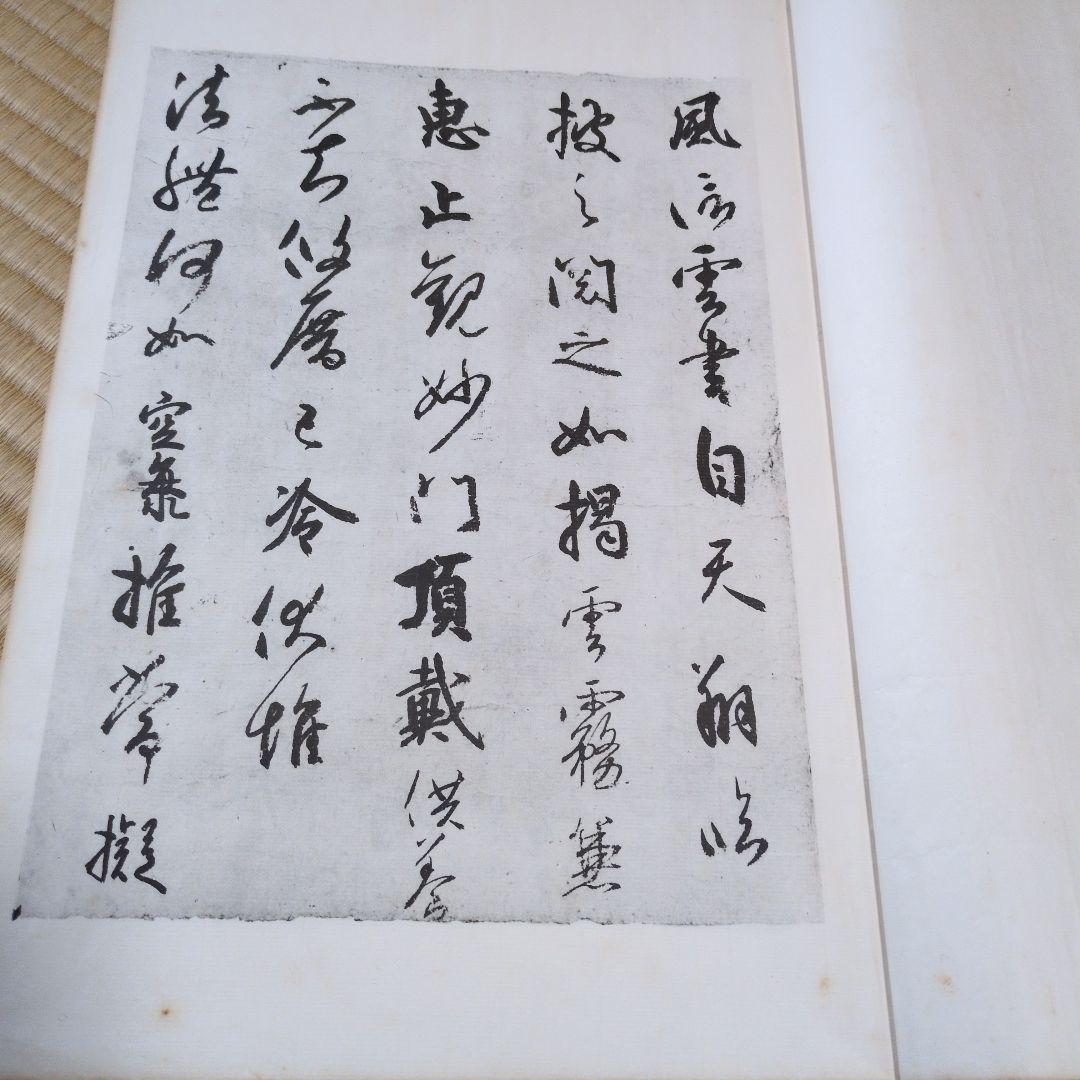 風信雲書自天翔臨
披之閲之如掲雲霧兼
恵止觀妙門頂戴供養
不知攸厝已冷伏惟
法體何如空海推常擬